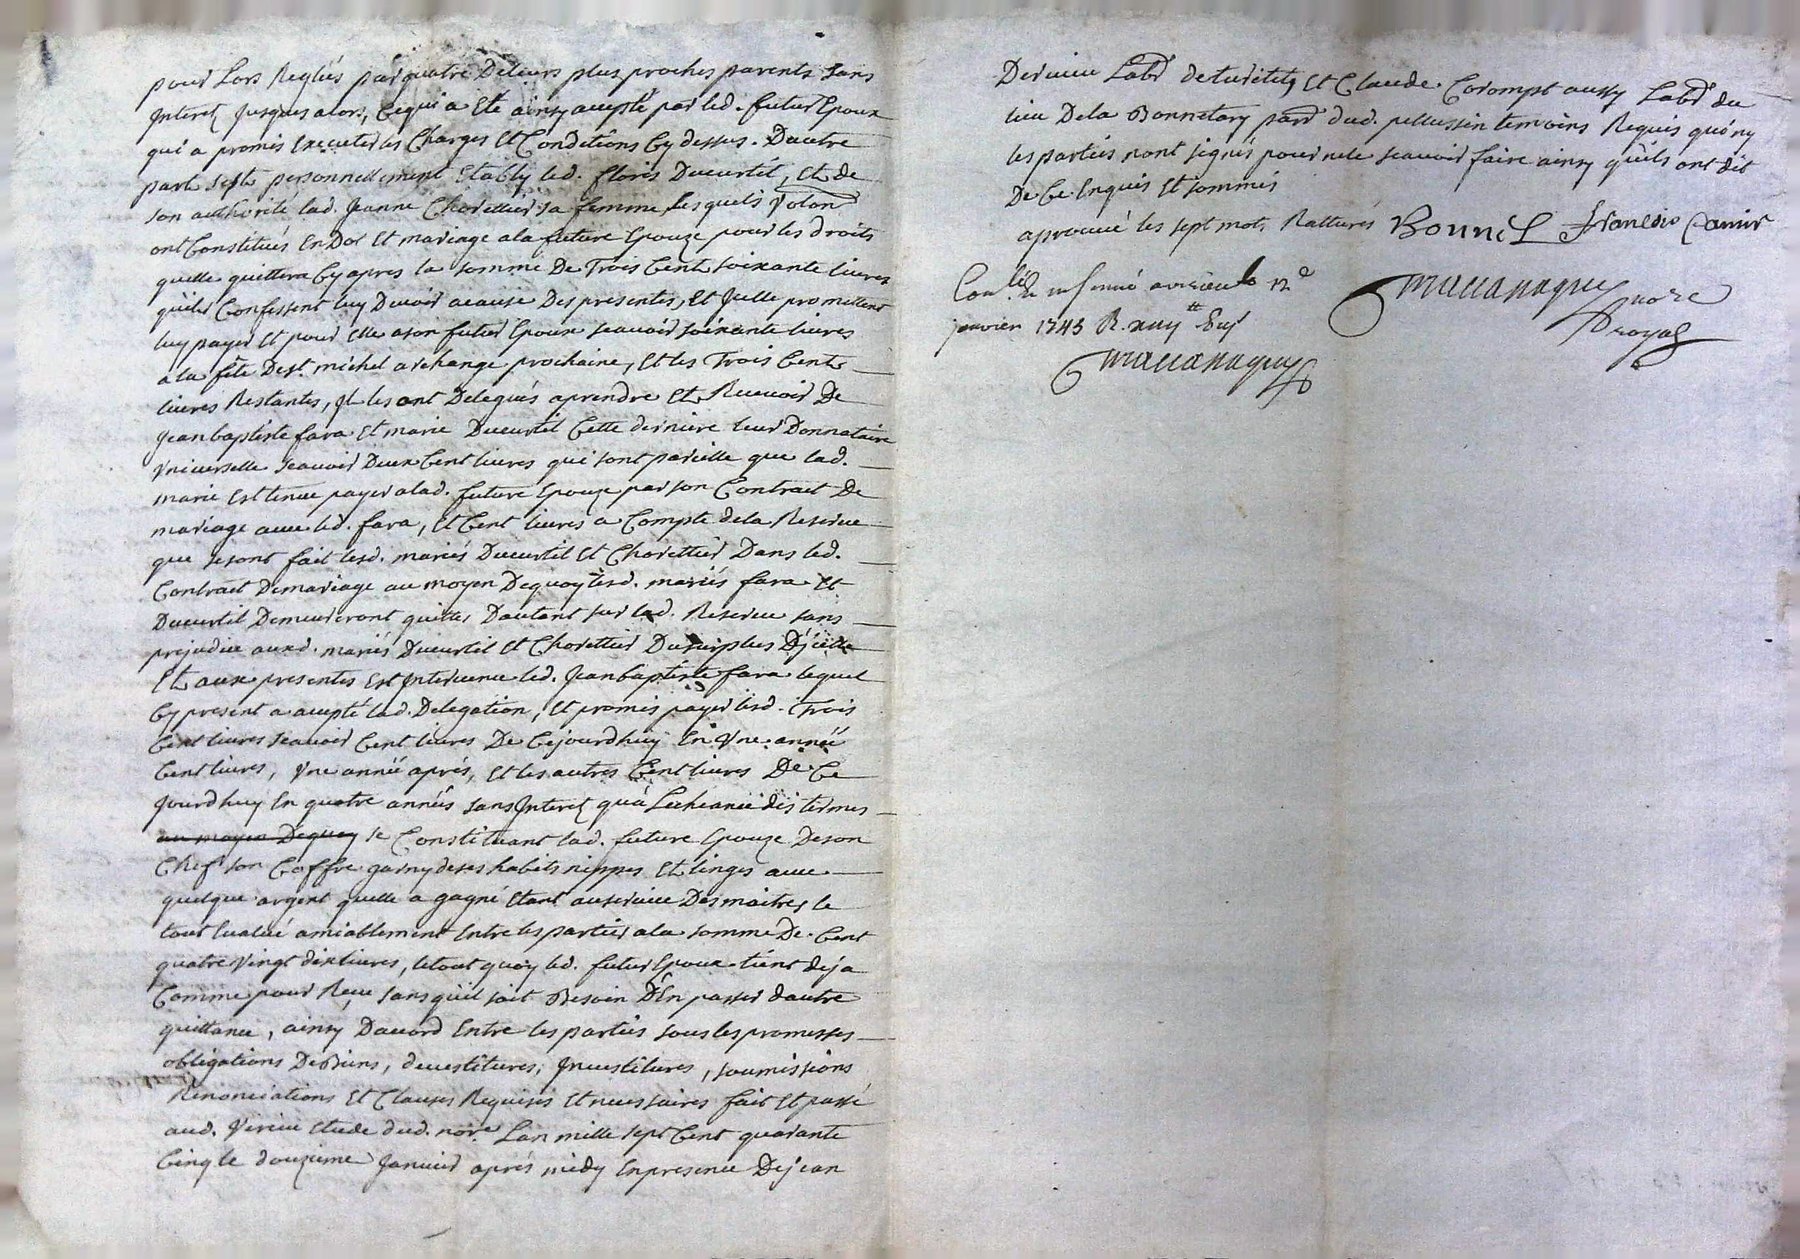 pour Lors Reglés par quatre De leurs plus proches parents sans
Interet Jusques alors, Cequi a Eté ainsy accepté par led. futur Epoux
qui a promis Executer les Charges Et Conditions Cy dessus. Dautre
part sest personnellement Etably led. floris Ducurtil, Et de
son authorité lad. Jeanne Chorettier sa femme, lesquels
ont Constitués En Dot Et mariage a la future Epouze pour les droits
quelle quittera Cy apres la somme De Trois Cent soixante livres
quils Confessent luy Devoir acause Des presentes, Et Jcelle promettent
luy payer Et pour Elle a son futur Epoux scavoir soixante livres
a la fete De st. michel archange prochaine, Et les Trois Cent
livres Restantes, Jl les ont Delegués aprendre Et Recevoir De
Jean baptiste fara Et marie Ducurtil Cette derniere leur Donnataire
Vniverselle scavoir Deux Cent livres qui sont parcille que lad.
marie Est tenue payer alad. future Epouze par son Contract De
mariage avec led. fara, Et Cent livres a Compte dela Reserve
que se sont fait lesd. mariés Ducurtil Et Chorettier Dans led.
Contract Demariage au moyen Dequoy lesd. mariés fara Et
Ducurtil Demeureront quittes Dautant sur lad. Reserve sans
prejudice auxd. mariés Ducurtil Et Chorettier Du surplus DJcelle
Et aux presentes Est Jntervenu led. Jean baptiste fara lequel
Cy present a accepté lad. Delegation, Et promis payer lesd. Trois
Cent livres scavoir Cent livres De Cejourdhuy En Vne année
Cent livres, Vne année aprés, Et les autres Cent livres De Ce
Jourdhuy En quatre années sans Jnteret qua Lecheance des termes
au moyen Dequoy se Constituant lad. future Epouze De son
Chef son Coffre garny de ses habits nippes Et linges avec
quelque argent quelle a gagné Etant au service Des maitres le
tout Evalué amiablement Entre les parties a la somme De Cent
quatre Vingt dix livres, le tout quoy led. futur Epoux tient deja
Comme pour Receu sans quil soit Besoin DEn passer dautre
quittance, ainsy Daccord Entre les parties sous les promesses
obligations De Biens, devestitures, Jnvestitures, soumissions
Renonciations Et Clauses Requises Et necessaires fait Et passé
aud. Virieu Etude dud. nore. Lan mille sept Cent quarante
Cinq le douzieme Janvier aprés midy En presence De jean
Dervieu Labr. Et Claude Corompt aussy Labr. du
lieu De la Bonnetary parr. dud. pellussin temoins Requis qui ny
les parties nont signés pour ne le scavoir faire ainsy quils ont dit
De Ce Enquis Et sommés
aprouvé les sept mots Ratturés Bonnel francois Camir
janvier 1745
nore
royal